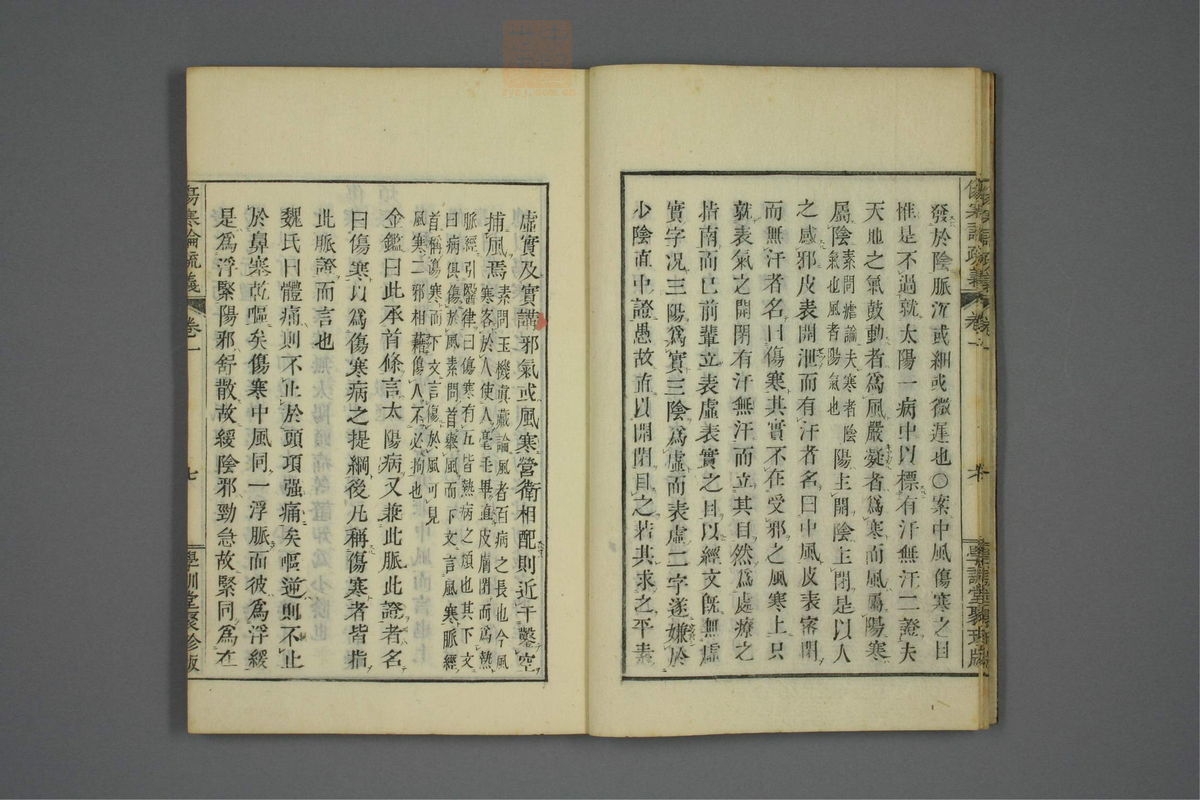 發於陰脈沉或細或微遲也○案中風傷寒之目
惟是不過就太陽一病中以標有汗無汗二證夫
天地之氣鼓動者為風嚴凝者為寒而風屬陽寒
屬陰素問瘧論夫寒者陰氣也風者陽氣也陽主開陰主閉是以人
之感邪皮表開泄而有汗者名曰中風皮表密閉
而無汗者名曰傷寒其實不在受邪之風寒上只
就表氣之開閉有汗無汗而立其目然為處療之
指南而已前輩立表虛表實之目以經文既無虛
實字况三陽為實三陰為虛而表虛二字遂嫌於
少陰直中證愚故直以開閉目之若其求之平素
虛實及實講邪氣或風寒營衛相配則近于鑿空
捕風焉素問玉機真藏論風者百病之長也今風
寒客於人使人毫毛畢直皮膚閉而為熱
脈經引醫律曰傷寒有五皆熱病之類也其下文
曰病俱傷於風素問首舉風而下文言風寒脈經
首稱傷寒而下文言傷於風可見
風寒二邪相藉傷人不必拘也
金鑑曰此承首條言太陽病又兼此脈此證者名
曰傷寒以為傷寒病之提綱後凡稱傷寒者皆指
此脈證而言也
魏氏曰體痛則不止於頭項强痛矣嘔逆則不止
於鼻塞乾嘔矣傷寒中風同一浮脈而彼為浮緩
是為浮緊陽邪舒散故緩陰邪勁急故緊同為在
傷寒論疏義
卷一
七
學訓堂聚珍版